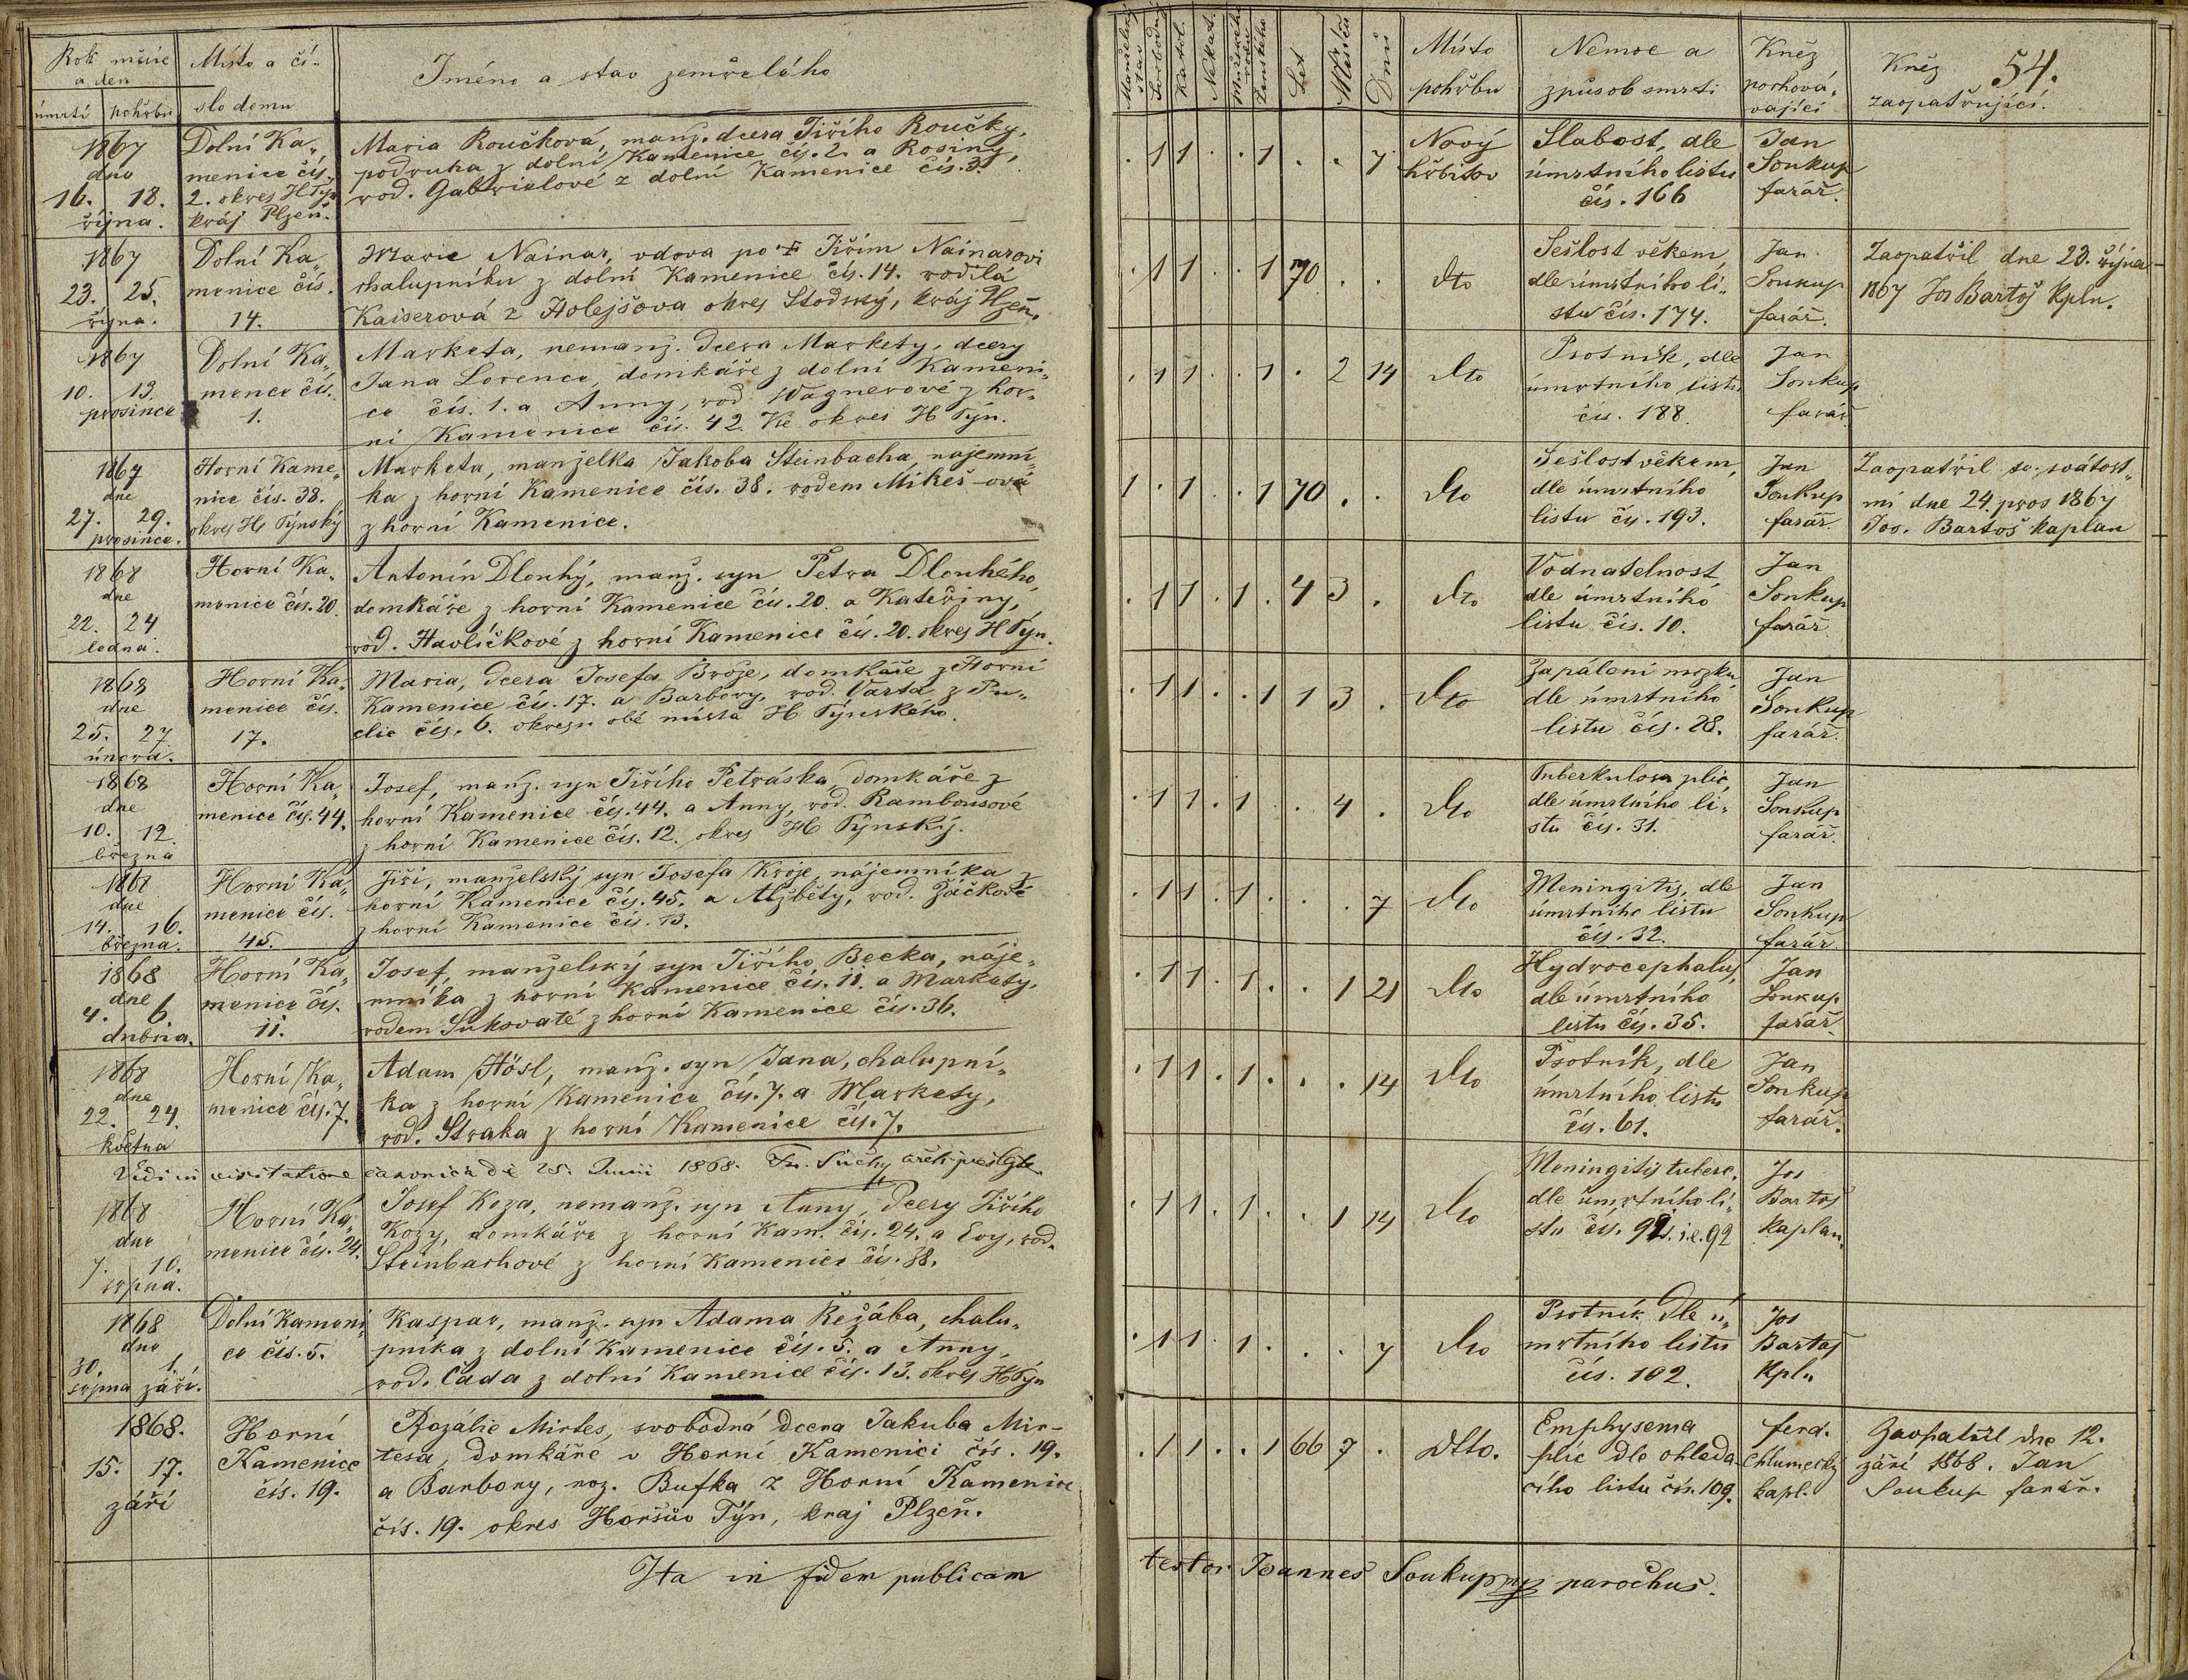 Rok měsíc a den
úmrtí pohřbu
Místo a čí-
slo domu
Jméno a stav zemřelého
Manželský stav
Svobodný
Katol.
Nekat.
Mužského rodu
Ženského
Let
Měsíců
Dnů
Místo
pohřbu
Nemoc a
způsob smrti
Kněz
pochová-
vající
Kněz
zaopatřující.
54.
1867
dne
16. 18.
října.
Dolní Ka-
menice čís.
2. okres H Týn
kráj Plzeň.
Maria Roučková, manž. dcera Jiřího Roučky,
podruha z dolní Kamenice čís. 2. a Rosiny,
rod. Gabrielové z dolní Kamenice čís. 3.
. 1 1 . . 1 . . 7
Nový
hřbitov
Slabost, dle
úmrtního listu
čís. 166
Jan
Soukup
farář.
1867
23. 25.
října.
Dolní Ka-
menice čís.
14.
Marie Nainar, vdova po † Jiřím Nainarovi
chalupníku z dolní Kamenice čís. 14. rodilá
Kaiserová z Holejšova okres Stodský, kráj Plzeň.
. 1 1 . . 1 70 . .
dto
Sešlost věkem,
dle úmrtního li-
stu čís. 174.
Jan
Soukup
farář.
Zaopatřil dne 23. října
1867 Jos Bartoš Kpln.
1867
10. 13.
prosince
Dolní Ka-
mence čís.
1.
Marketa, nemanž. dcera Markety, dcery
Jana Lorence, domkáře z dolní Kameni-
ce čís. 1. a Anny, rod. Wagnerové z hor-
ní Kamenice čís. 42. Vše okres H Týn.
. 1 1 . . 1 . 2 14
dto
Psotník, dle
úmrtního listu
čís. 188.
Jan
Soukup
farář.
1867
dne
27. 29.
prosince.
Horní Kame-
nice čís. 38.
okres H Týnský
Marketa, manželka Jakoba Steinbacha, nájemní-
ka z horní Kamenice čís. 38. rodem Mikeš-ová
z horní Kamenice.
1 . 1 . . 1 70 . .
dto
Sešlost věkem,
dle úmrtního
listu čís. 193.
Jan
Soukup
farář.
Zaopatřil sv. svátost-
mi dne 24. pros 1867
Jos. Bartoš kaplan
1868
dne
22. 24
ledna.
Horní Ka-
menice čís. 20.
Antonín Dlouhý, manž. syn Petra Dlouhého,
domkáře z horní Kamenice čís. 20. a Kateřiny,
rod. Havlíčkové z horní Kamenice čís. 20. okres H Týn.
. 1 1 . 1 . 4 3 .
dto
Vodnatelnost
dle úmrtního
listu čís. 10.
Jan
Soukup
farář.
1868
dne
25. 27
února.
Horní Ka-
menice čís.
17.
Maria, dcera Josefa Brože, domkáře z Horní
Kamenice čís. 17. a Barbory, rod. Varta z Pu-
clic čís. 6. okresu obé místa H Týnského.
. 1 1 . . 1 1 3 .
dto
Zapálení mozku
dle úmrtního
listu čís. 28.
Jan
Soukup
farář.
1868
dne
10. 12.
března
Horní Ka-
menice čís. 44.
Josef, manž. syn Jiřího Petráska, domkáře z
horní Kamenice čís. 44. a Anny, rod. Rambousové
z horní Kamenice čís. 12. okres H Týnský.
. 1 1 . 1 . . 4 .
dto
Tuberkulosa plic,
dle úmrtního li-
stu čís. 31.
Jan
Soukup
farář.
1868
dne
14. 16.
března.
Horní Ka-
menice čís.
45.
Jiří, manželský syn Josefa Kroje, nájemníka z
horní Kamenice čís. 45. a Alžběty, rod. Žáčkové
z horní Kamenice čís. 13.
. 1 1 . 1 . . . 7
dto
Meningitis, dle
úmrtního listu
čís. 32.
Jan
Soukup
farář.
1868
dne
4. 6.
dubna.
Horní Ka-
menice čís.
11.
Josef, manželský syn Jiřího Becka, náje-
mníka z horní Kamenice čís. 11. a Markety,
rodem Sukovaté z horní Kamenice čís. 36.
. 1 1 . 1 . . 1 21
dto
Hydrocephalus,
dle úmrtního
listu čís. 35.
Jan
Soukup
farář.
1868
dne
22. 24.
května
Horní Ka-
menice čís. 7.
Adam Hösl, manž. syn Jana, chalupní-
ka z horní Kamenice čís. 7. a Markety,
rod. Straka z horní Kamenice čís. 7.
. 1 1 . 1 . . . 14
dto
Psotník, dle
úmrtního listu
čís. 61.
Jan
Soukup
farář.
Vidi in visitatione canonica die 25. Junii 1868. Fr. Suchý
1868
dne
7. 10.
srpna.
Horní Ka-
menice čís. 24.
Josef Koza, nemanž. syn Anny, dcery Jiřího
Kozy, domkáře z horní Kam. čís. 24. a Evy, rod.
Steinbachové z horní Kamenice čís. 38.
. 1 1 . 1 . . 1 14
dto
Meningitis tuberc.
dle úmrtního li-
stu čís. 92. i.e. 92
Jos
Bartoš
kaplan.
1868
dne
30. 1.
srpna září.
Dolní Kameni-
ce čís. 5.
Kaspar, manž. syn Adama Řežába, chalu-
pníka z dolní Kamenice čís. 5. a Anny,
rod. Čada z dolní Kamenice čís. 13. okres H Týn
. 1 1 . 1 . . . 7
dto
Psotník dle ú-
mrtního listu
čís. 102.
Jos
Bartoš
Kpln
1868.
15. 17.
září
Horní
Kamenice
čís. 19.
Rozálie Mirtes, svobodná dcera Jakuba Mir-
tesa, domkáře v Horní Kamenici čís. 19.
a Barbory, roz. Bufka z Horní Kamenice
čís. 19. okres Horšův Týn, kraj Plzeň.
. 1 1 . . 1 66 7 .
dtto.
Emphysema
plic dle ohleda
cího listu čís. 109.
ferd.
Chlumecký
kapl.
Zaopatřil dne 12.
září 1868. Jan
Soukup farář.
Ita in fidem publicam testor Joannes Soukup mp parochus.